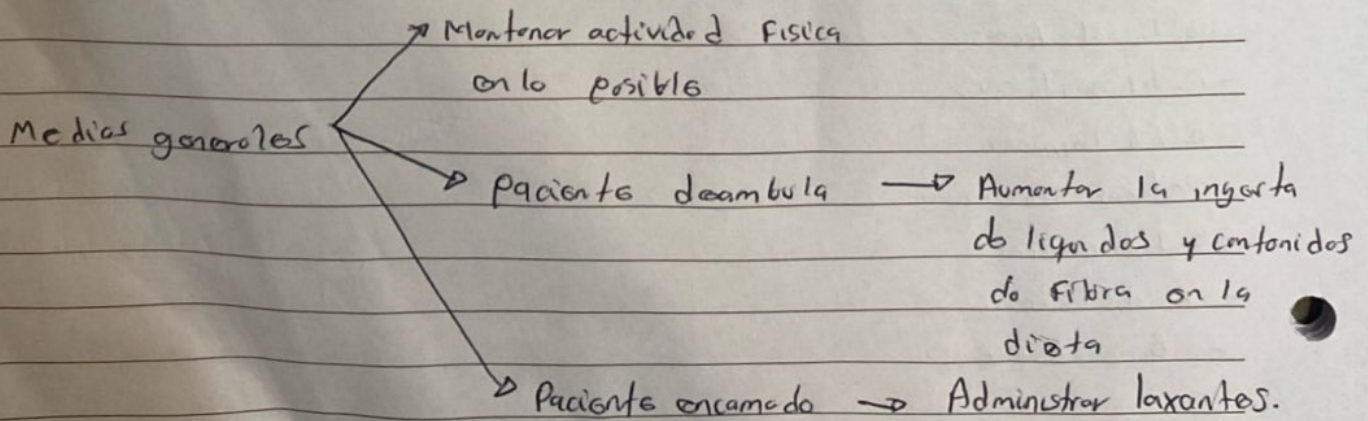 Mantener actividad Fisica
en lo posible
Medias generales
Paciente deambula → Aumentar la ingesta
de liquidos y contenidos
de Fibra en la
dieta
Paciente encamado → Administrar laxantes.